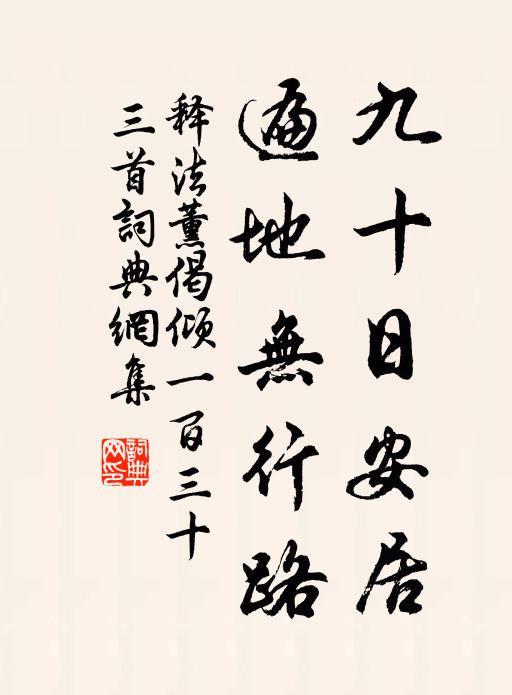 九十日安居
遍地無行路
释法薰偈倾一百三十
三首詞典網集
詞典網印